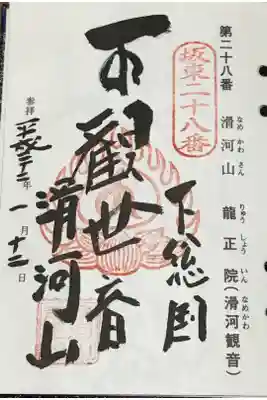 第二十八番
なめ かわ さん りゅう しょう いん なめかわ
滑河山 龍正院(滑河観音)
坂東二十八番
下総国
觀世音
滑河山
参拝 平成二三年 一月十二日